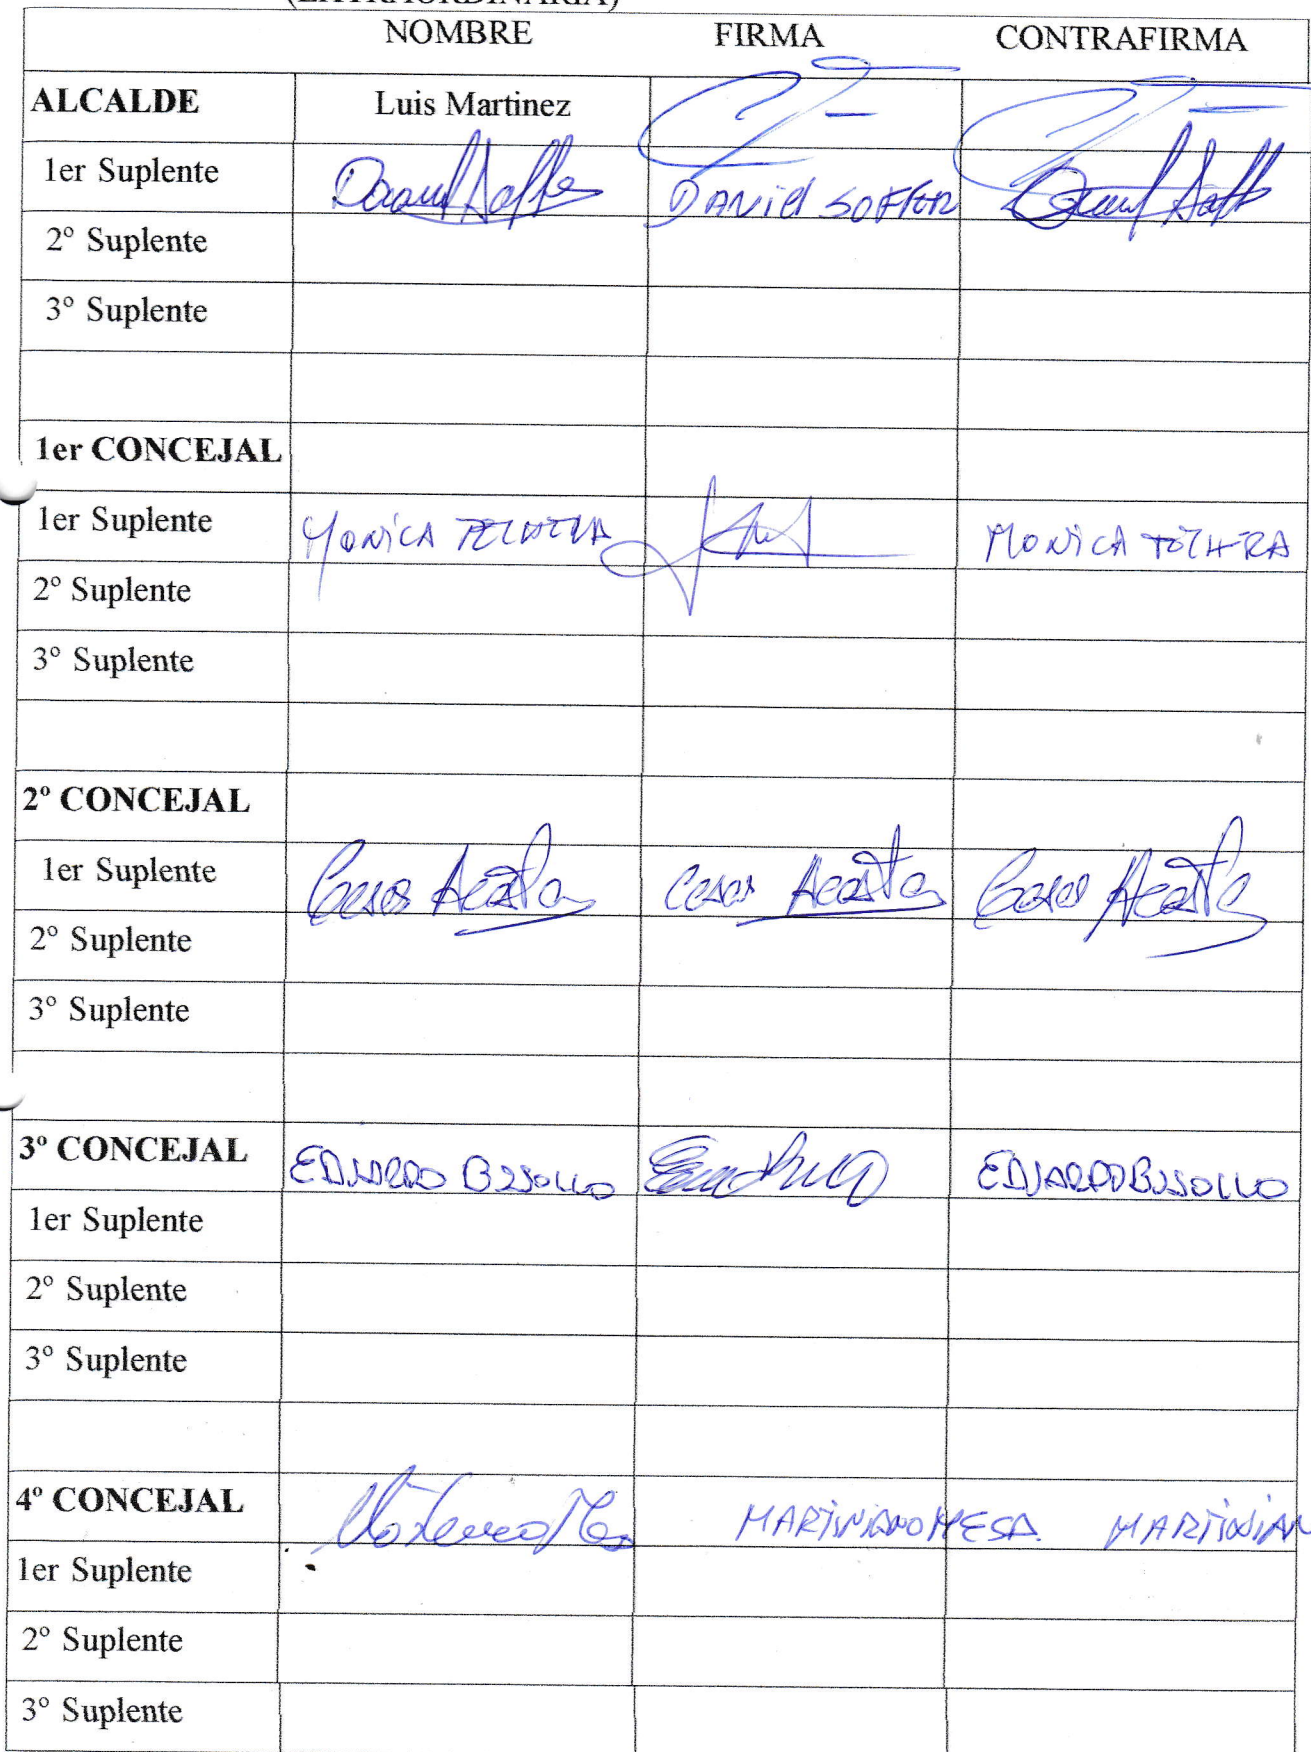 (EXTRAORDINARIA)
NOMBRE FIRMA CONTRAFIRMA
ALCALDE Luis Martinez
1er Suplente DANiel SOFFER
2° Suplente
3° Suplente
1er CONCEJAL
1er Suplente MONiCA MONiCA
2° Suplente
3° Suplente
2º CONCEJAL
1er Suplente Cesar Acosta Cesar Acosta Cesar Acosta
2° Suplente
3° Suplente
3º CONCEJAL EDUARDO EDUARDO
1er Suplente
2° Suplente
3° Suplente
4º CONCEJAL MARTiNiANO MESA MARTiNiAN
1er Suplente
2° Suplente
3° Suplente